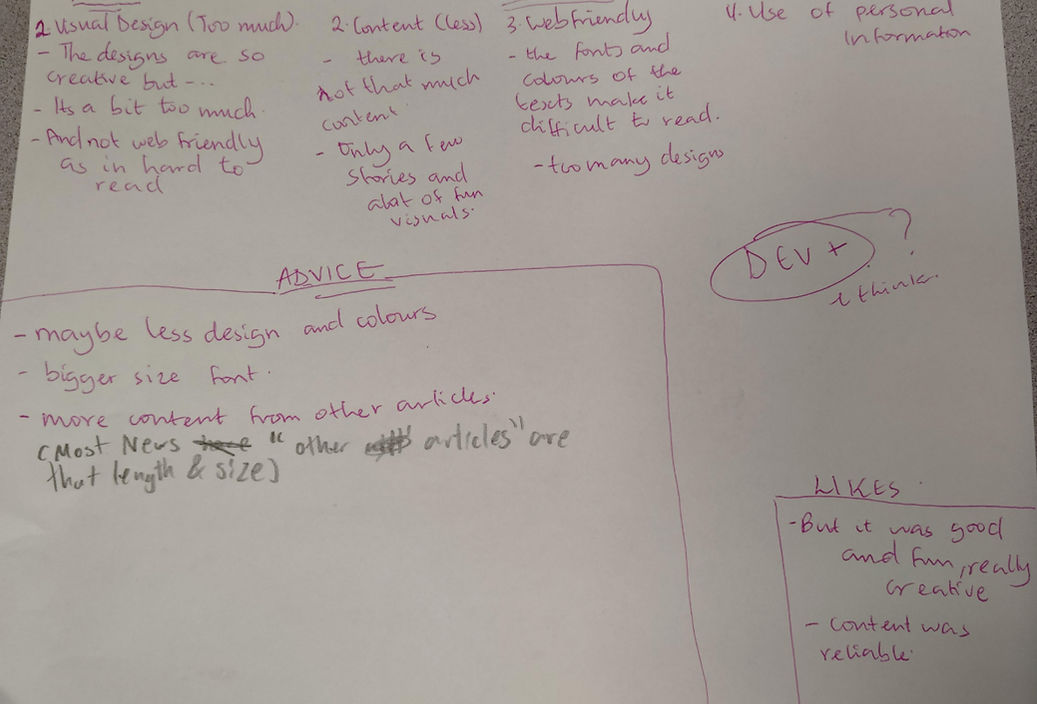 2. Visual Design (Too much).
- The designs are so
creative but -...
- Its a bit too much.
- And not web friendly
as in hard to
read
2. Content (Less)
- there is
not that much
content
- Only a few
stories and
alot of fun
visuals.
3. Web friendly
- the fonts and
colours of the
texts make it
difficult to read.
- too many designs
4. Use of personal
Information
DEV + ?
i think.
ADVICE
- maybe less design and colours
- bigger size font.
- more content from other articles.
(Most News "other articles" are
that length & size)
LIKES
- But it was good
and fun, really
creative
- content was
reliable.